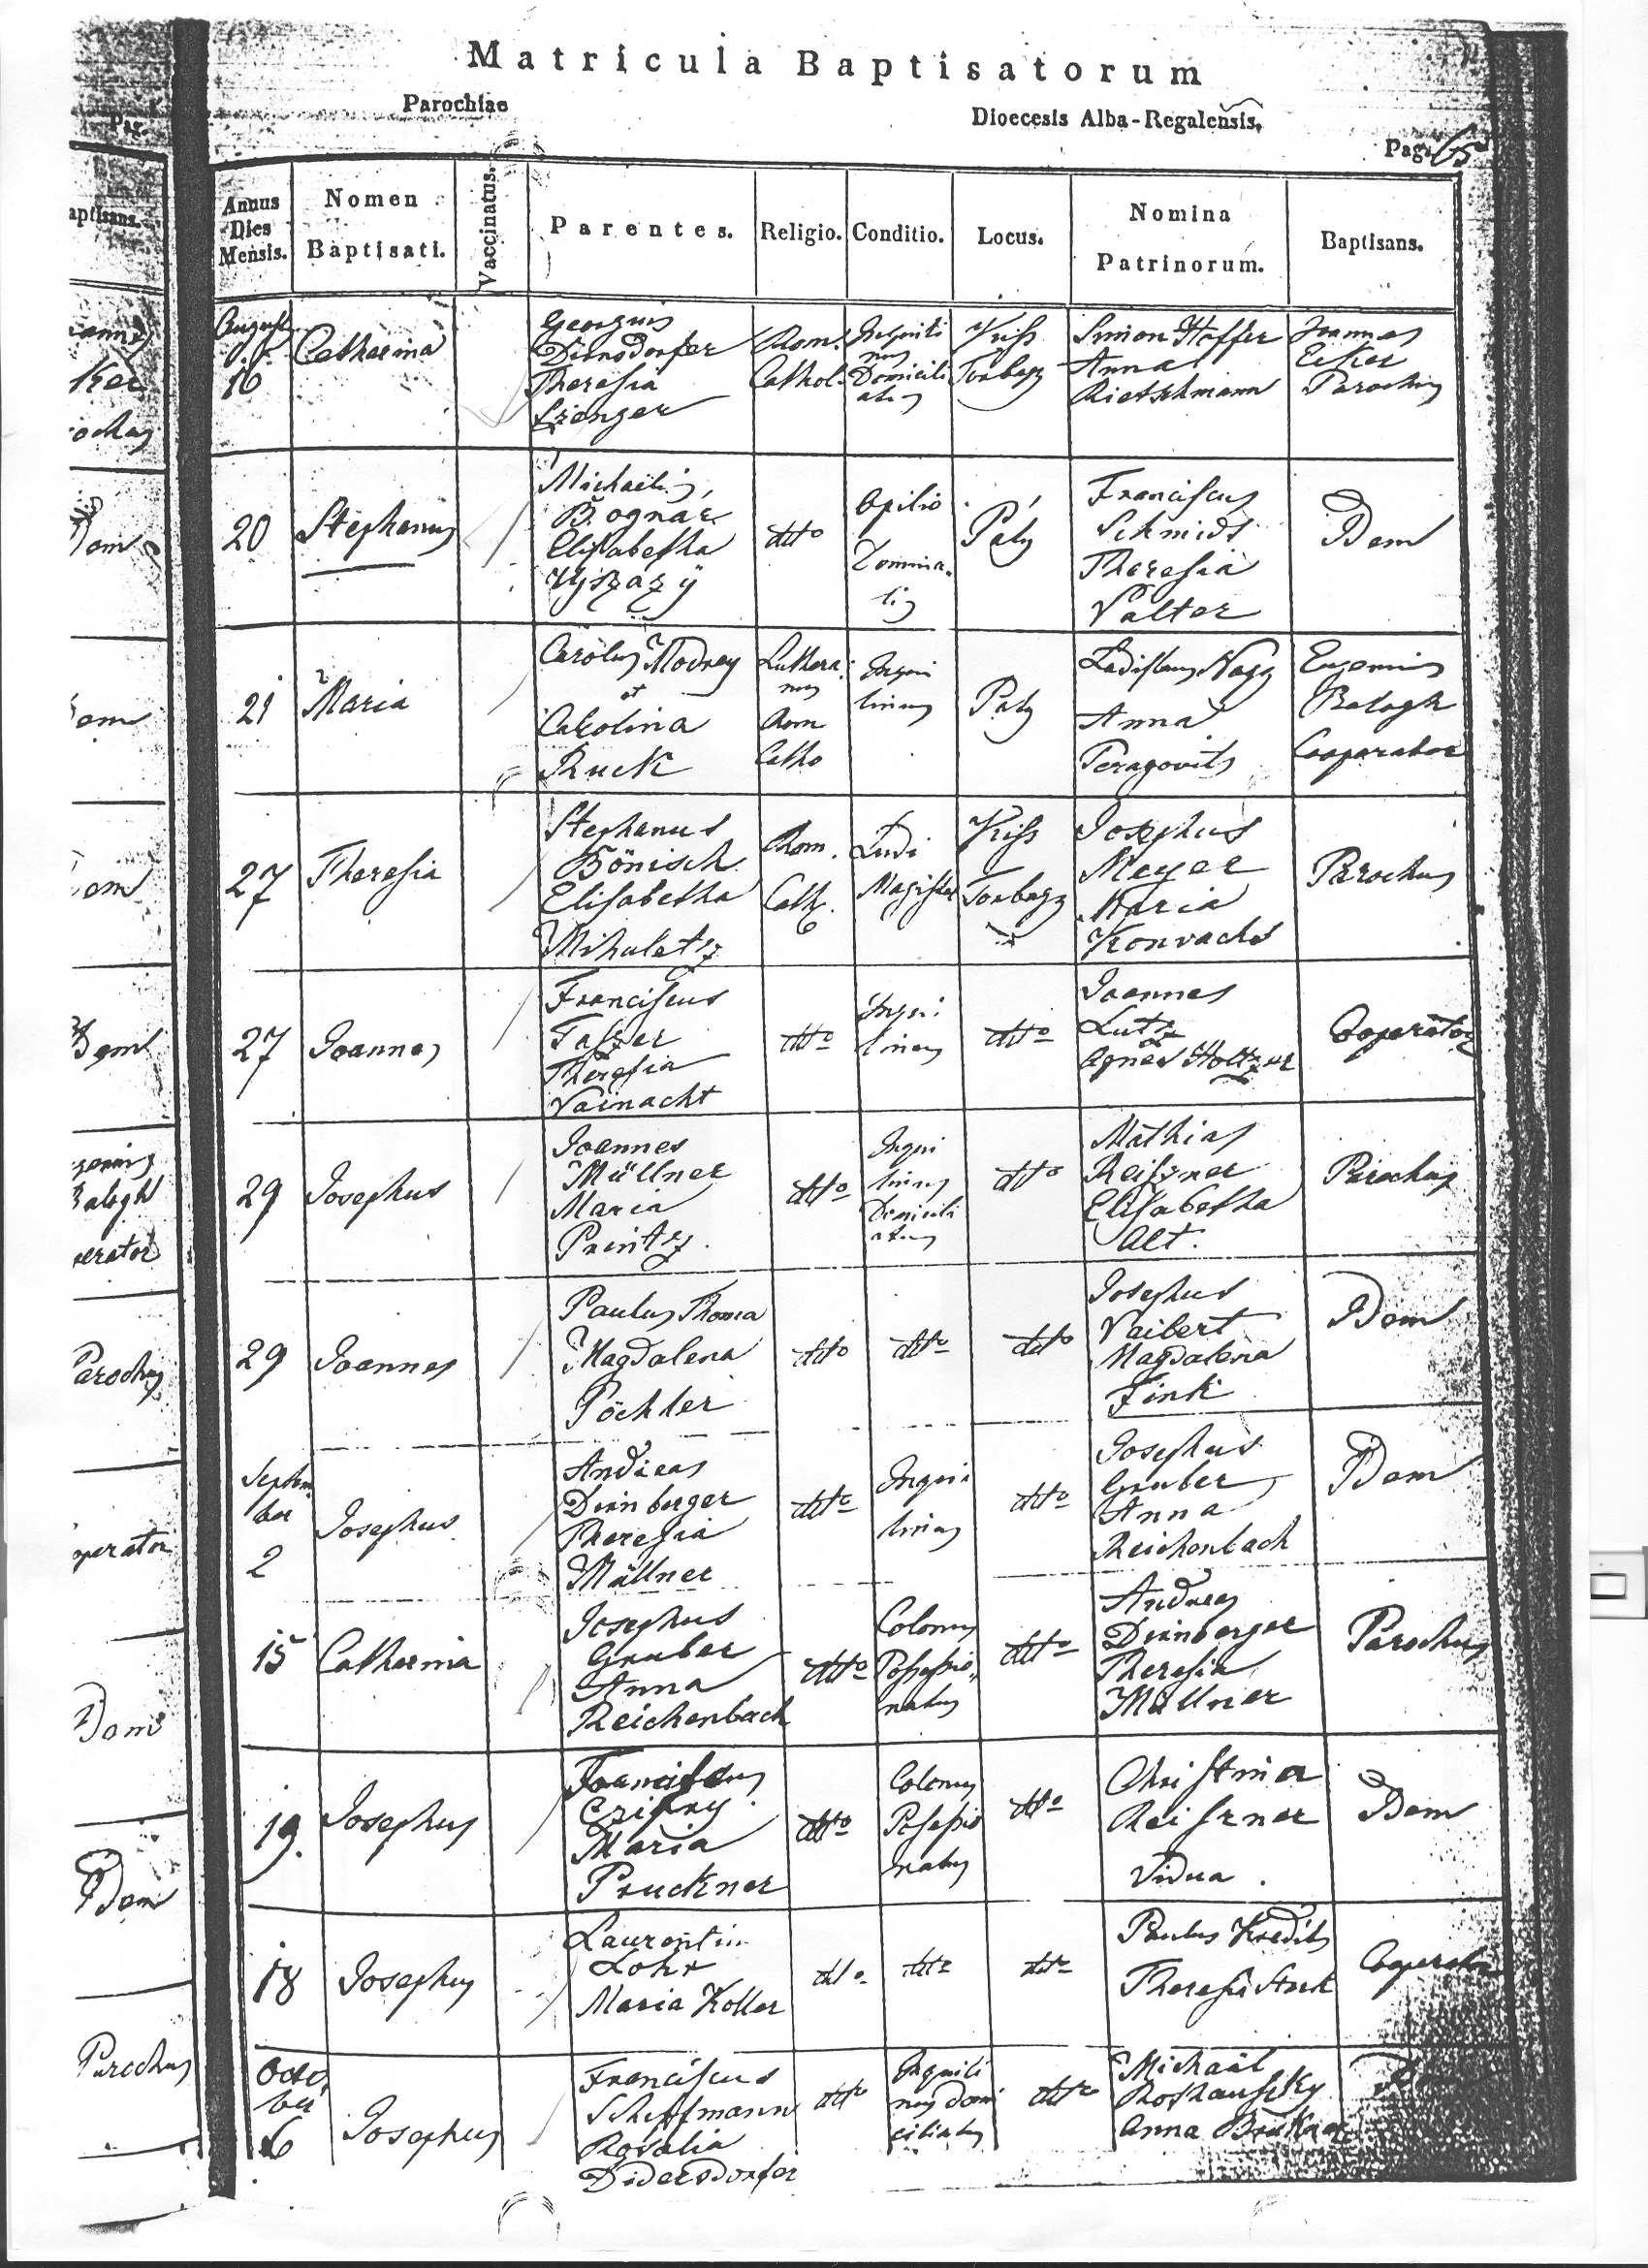 Matricula Baptisatorum
Parochiae
Dioecesis Alba-Regalensis,
Pag.
Pag.
Annus
Dies
Mensis.
Nomen
Baptisati.
Vaccinatus.
Parentes.
Religio.
Conditio.
Locus.
Nomina
Patrinorum.
Baptisans.
August
16
Catharina
Georgius
Dirnsdorfer
Theresia
Rom.
Cathol.
Inquili
nus
Domicili
atus
Kiss
Torbagy
Simon Hoffer
Anna
Rietschmann
Joannes
Ecker
Parochus
20
Stephanus
Michaelis
Bognar
Elisabetha
dtto
Opilio
Domina-
lis
Paty
Franciscus
Schmidt
Theresia
Valter
Idem
21
Maria
Carolus Modrey
et
Carolina
Ruck
Luthera-
nus
Rom
Catho
Inqui
linus
Paty
Ladislaus Nagy
Anna
Peragovits
Eugenius
Balogh
Cooperator
27
Theresia
Stephanus
Bönisch
Elisabetha
Mihaletz
Rom.
Cath.
Ludi
Magister
Kiss
Torbagy
Josephus
Meyer
Maria
Kronvachs
Parochus
27
Joannes
Franciscus
Taszer
Theresia
Vainacht
dtto
Inqui
linus
dtto
Joannes
Lutz
Agnes Holtzer
Cooperator
29
Josephus
Joannes
Müllner
Maria
Printz
dtto
Inqui
linus
Domicili
atus
dtto
Mathias
Reiszner
Elisabetha
Alt.
Parochus
29
Joannes
Paulus Thoma
Magdalena
Pöchler
dtto
dtto
dtto
Josephus
Vaibert
Magdalena
Fink
Idem
Septem
ber
2
Josephus
Andreas
Dirnberger
Theresia
Müllner
dtto
Inqui
linus
dtto
Josephus
Gruber
Anna
Reichenbach
Idem
15
Catharina
Josephus
Gruber
Anna
Reichenbach
dtto
Colonus
Possessio-
natus
dtto
Andreas
Dirnberger
Theresia
Müllner
Parochus
19.
Josephus
Franciscus
Maria
Pruckner
dtto
Colonus
Possessio
natus
dtto
Christina
Reiszner
Vidua.
Idem
18
Josephus
Lohr
Maria Koller
dtto
dtto
dtto
Paulus Kredits
Theresia
Cooperator
Octo
ber
6
Josephus
Franciscus
Schiffmann
Rosalia
Didersdorfer
dtto
Inquili
nus domi
ciliatus
dtto
Michaël
Anna